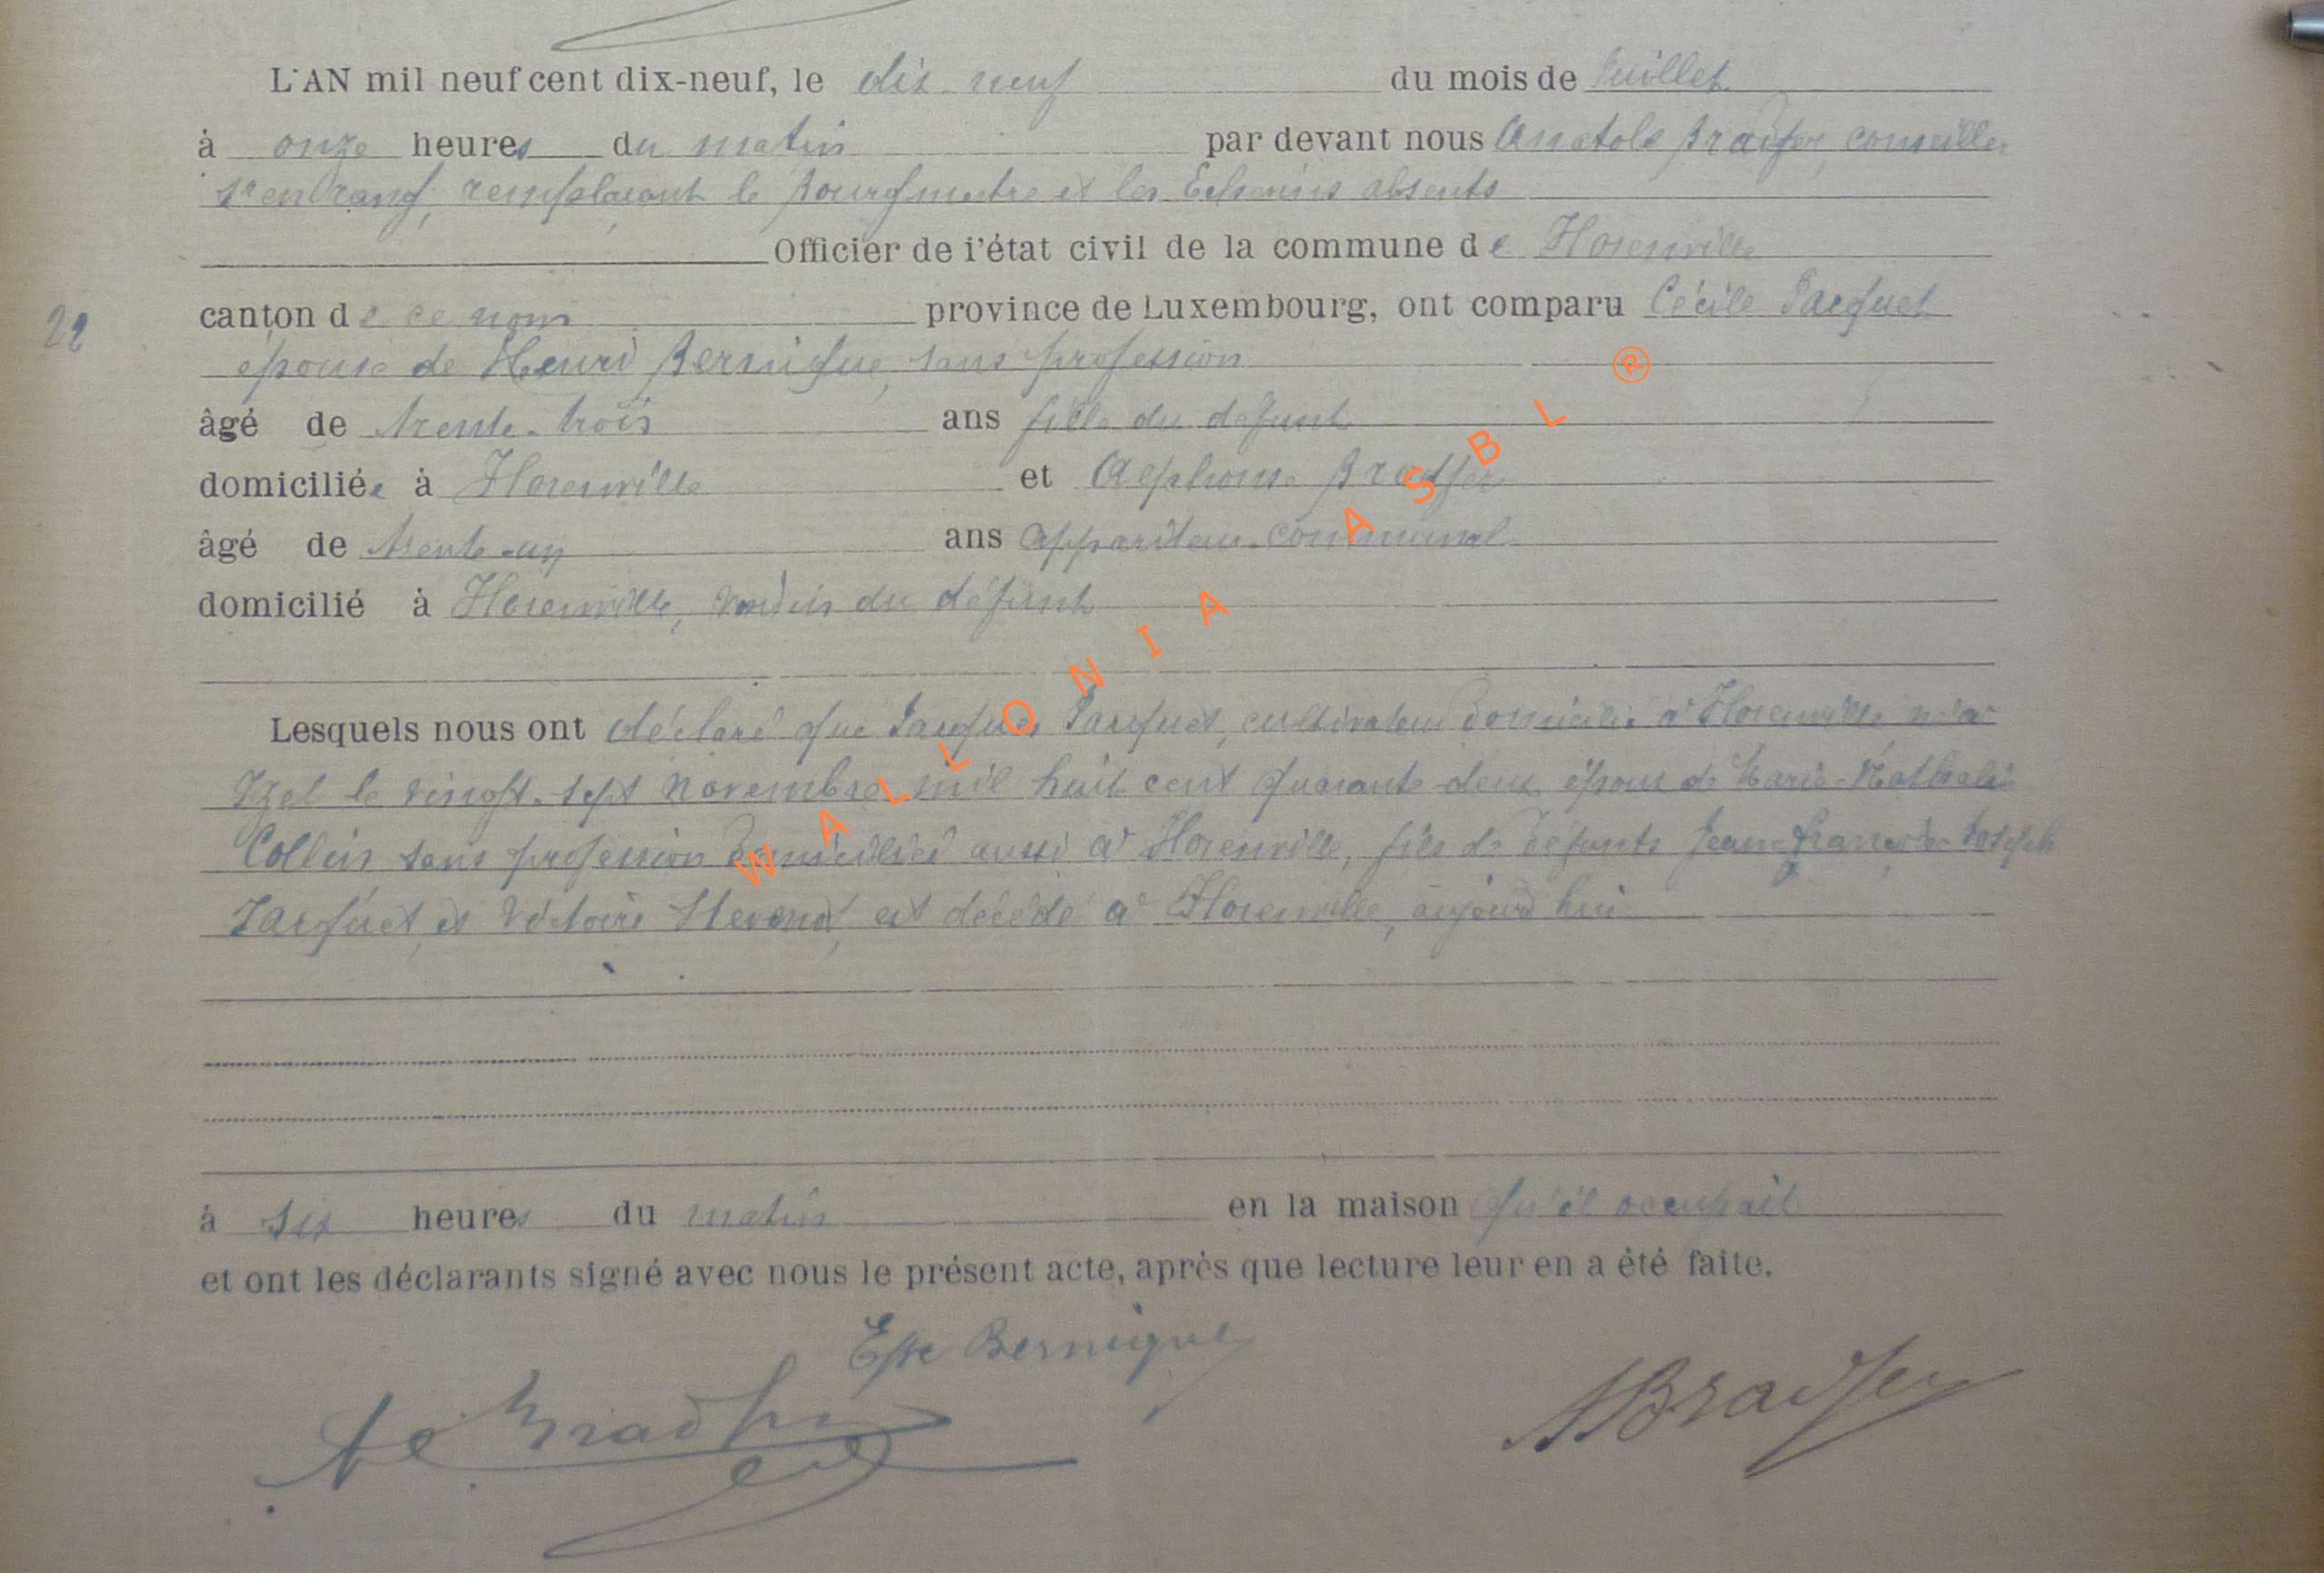 L'AN mil neuf cent dix-neuf, le dix-neuf du mois de Juillet
à onze heures du matin par devant nous Anatole Bradfer, conseiller
1er en rang, remplaçant le Bourgmestre et les Echevins absents
Officier de i'état civil de la commune de Florenville
22
canton de ce nom province de Luxembourg, ont comparu Cécile Jacquet
épouse de Henri Bernique, sans profession
âgé de trente-trois ans fille du défunt
domiciliée à Florenville et Alphonse Bradfer
âgé de trente-un ans appariteur communal
domicilié à Florenville, voisin du défunt
Lesquels nous ont déclaré que Jacques Jacquet, cultivateur domicilié à Florenville, né à
Izel le vingt-sept novembre mil huit cent quarante-deux, époux de Marie-Nathalie
Collin sans profession domiciliée aussi à Florenville, fils de défunts Jean-François-Joseph
Jacquet et Victoire est décédé à Florenville, aujourd'hui
à six heures du matin en la maison qu'il occupait
et ont les déclarants signé avec nous le présent acte, après que lecture leur en a été faite.
Esse Bernique
Al Bradfer
A Bradfer
WALLONIA ASBL ®